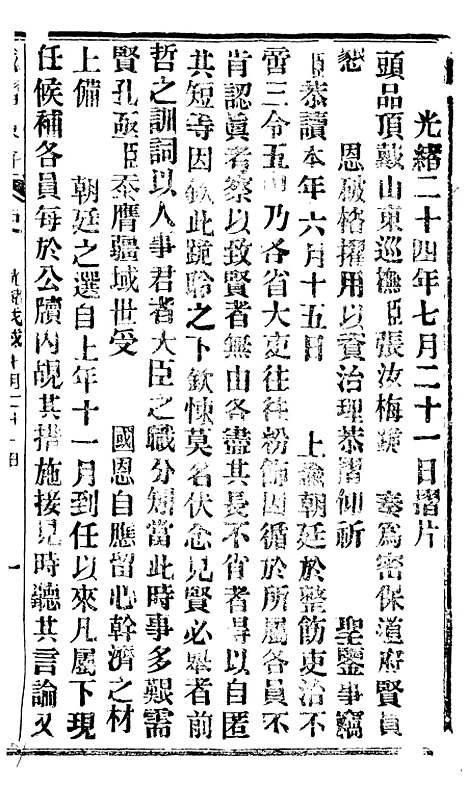 光緒二十四年七月二十一日摺片
頭品頂戴山東巡撫臣張汝梅跪 奏爲密保道府賢員
懇 恩破格擢用以資治理恭摺仰祈 聖鑒事竊
臣恭讀本年六月十五日 上諭朝廷於整飭吏治不
啻三令五申乃各省大吏往往粉飾因循於所屬各員不
肯認眞者察以致賢者無由各盡其長不省者得以自匿
其短等因欽此跪聆之下欽悚莫名伏念見賢必舉者前
哲之訓詞以人事君者大臣之職分矧當此時事多艱需
賢孔亟臣忝膺疆域世受 國恩自應留心幹濟之材
上備 朝廷之選自上年十一月到任以來凡屬下現
任候補各員每於公牘內覘其措施接見時聽其言論又
光緒戊戌十月二十一日
一